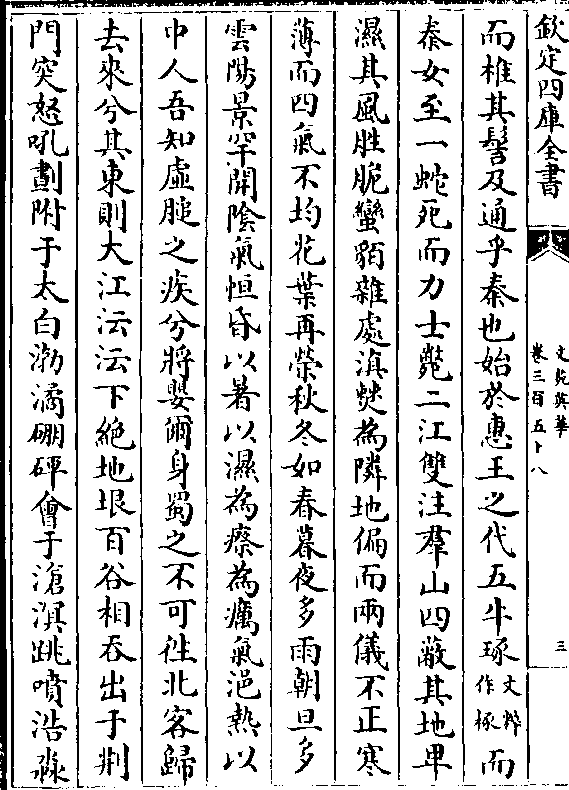 欽定四庫全書
文苑英華
卷三百五十八
三
而椎其髻及通乎秦也始於惠王之代五牛琢文粹作椓而
秦女至一蛇死而力士斃二江雙注羣山四蔽其地卑
濕其風脞脆蠻貊雜處滇僰為隣地偏而兩儀不正寒
薄而四氣不均花葉再榮秋冬如春暮夜多雨朝旦多
雲陽景罕開陰氣恒昏以暑以濕為瘵為癘氣浥熱以
中人吾知虛腄之疾兮將嬰爾身蜀之不可徃北客歸
去來兮其東則大江沄沄下絶地垠百谷相吞出于荆
門突怒吼劃附于太白渤潏硼砰會于滄溟跳噴浩淼